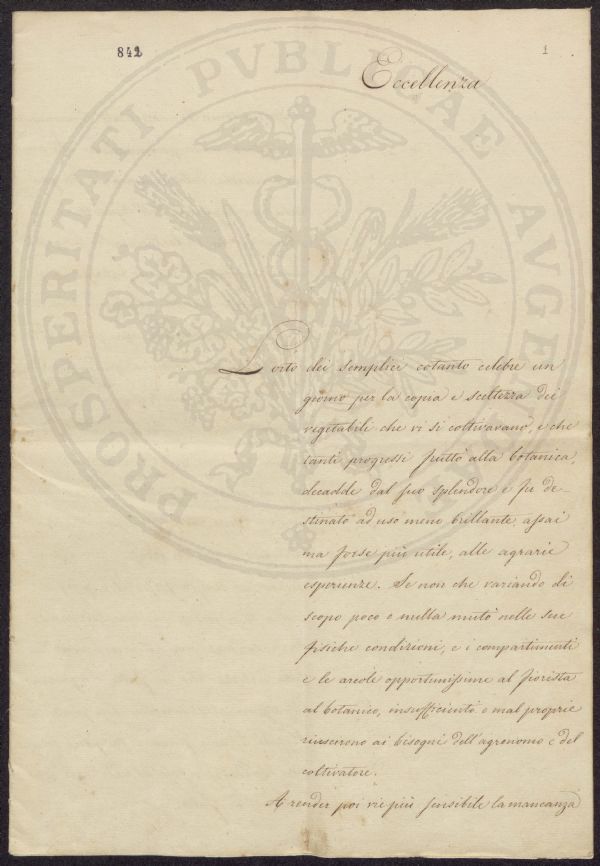 842
1
Eccellenza
L'orto dei semplici cotanto celebre un
giorno per la copia e sceltezza dei
vegetabili che vi si coltivavano, e che
tanti progressi fruttò alla botanica,
decadde dal suo splendore e fu de-
stinato ad uso meno brillante assai
ma forse più utile, alle agrarie
esperienze. Se non che variando di
scopo poco o nulla mutò nelle sue
fisiche condizioni, e i compartimenti
e le areole opportunissime al fiorista
al botanico, insufficienti o mal proprie
riuscirono ai bisogni dell'agronomo e del
coltivatore.
A render poi vie più sensibile la mancanza
PROSPERITATI PVBLICAE AVGENDAE